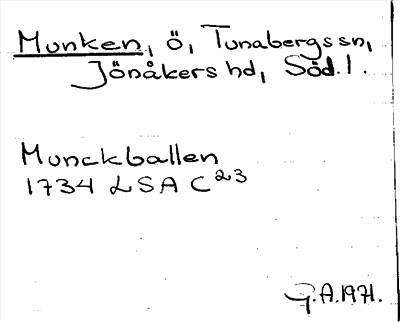 Munken, ö, Tunabergs sn,
Jönåkers hd, Söd. l.
Munckballen
1734 LSA C 23
G.A. 1971.